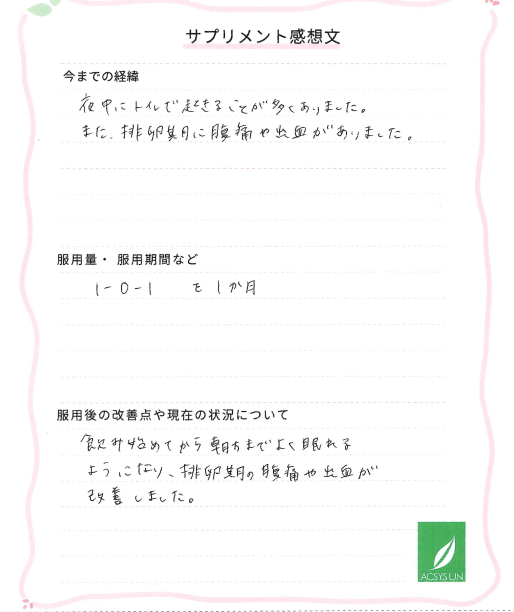 サプリメント感想文
今までの経緯
夜中にトイレで起きることが多くありました。
また、排卵期に腹痛や出血がありました。
服用量・服用期間など
1-0-1 を1か月
服用後の改善点や現在の状況について
飲み始めてから朝方までよく眠れる
ようになり、排卵期の腹痛や出血が
改善しました。
ACSYS UN